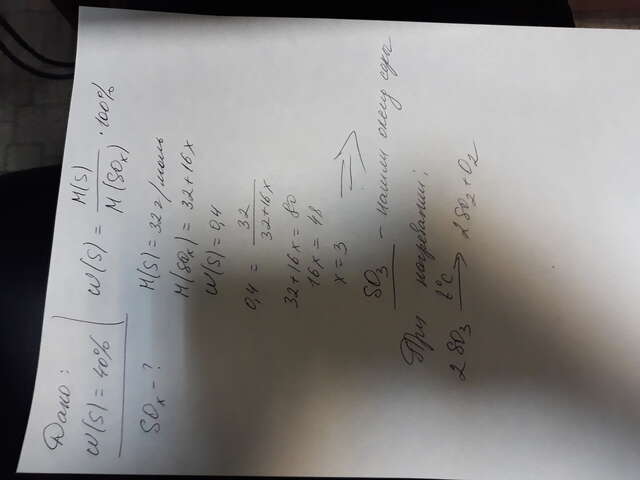 Дано:
W(S) = 40%
SOx - ?
W(S) = M(S) / M(SOx) · 100%
M(S) = 32 г/моль
M(SOx) = 32+16x
W(S) = 0,4
0,4 = 32 / 32+16x
32+16x = 80
16x = 48
x = 3 ⇒
SO3 - нашли оксид серы
При нагревании:
2SO3 t°C → 2SO2 + O2